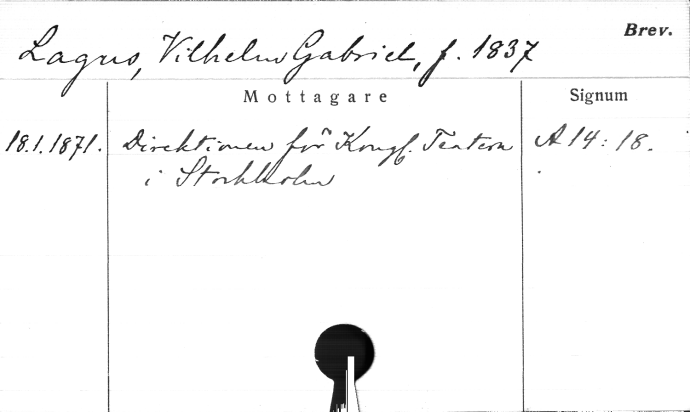 Brev.
Lagus, Vilhelm Gabriel, f. 1837
Mottagare Signum
18.1.1871. Direktionen för Kongl. Teatern A 14: 18.
i Stockholm